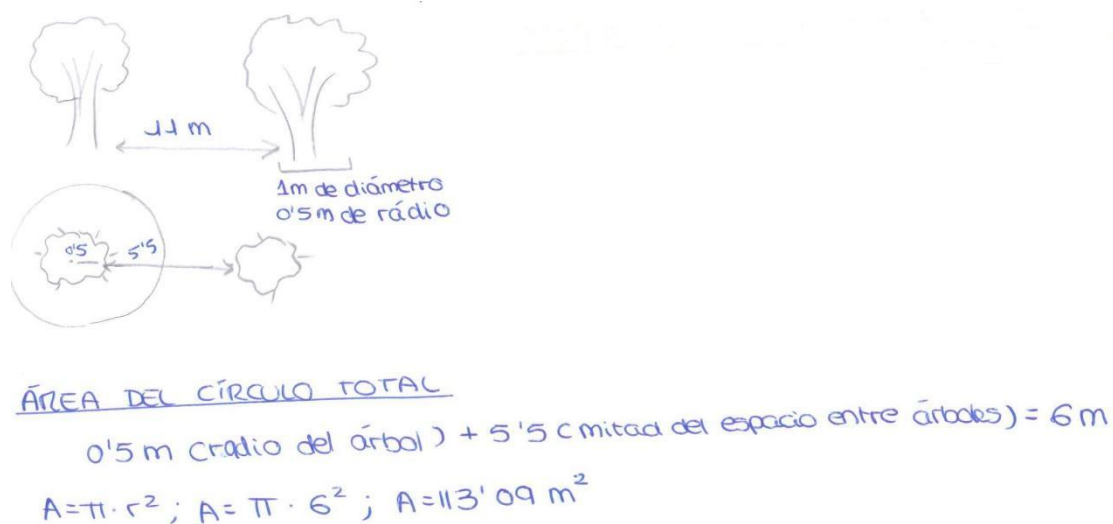 11 m
1m de diámetro
0'5 m de rádio
0'5 5'5
ÁREA DEL CÍRCULO TOTAL
0'5 m (radio del árbol) + 5'5 (mitad del espacio entre árboles) = 6 m
A=π·r²; A= π·6²; A=113'09 m²